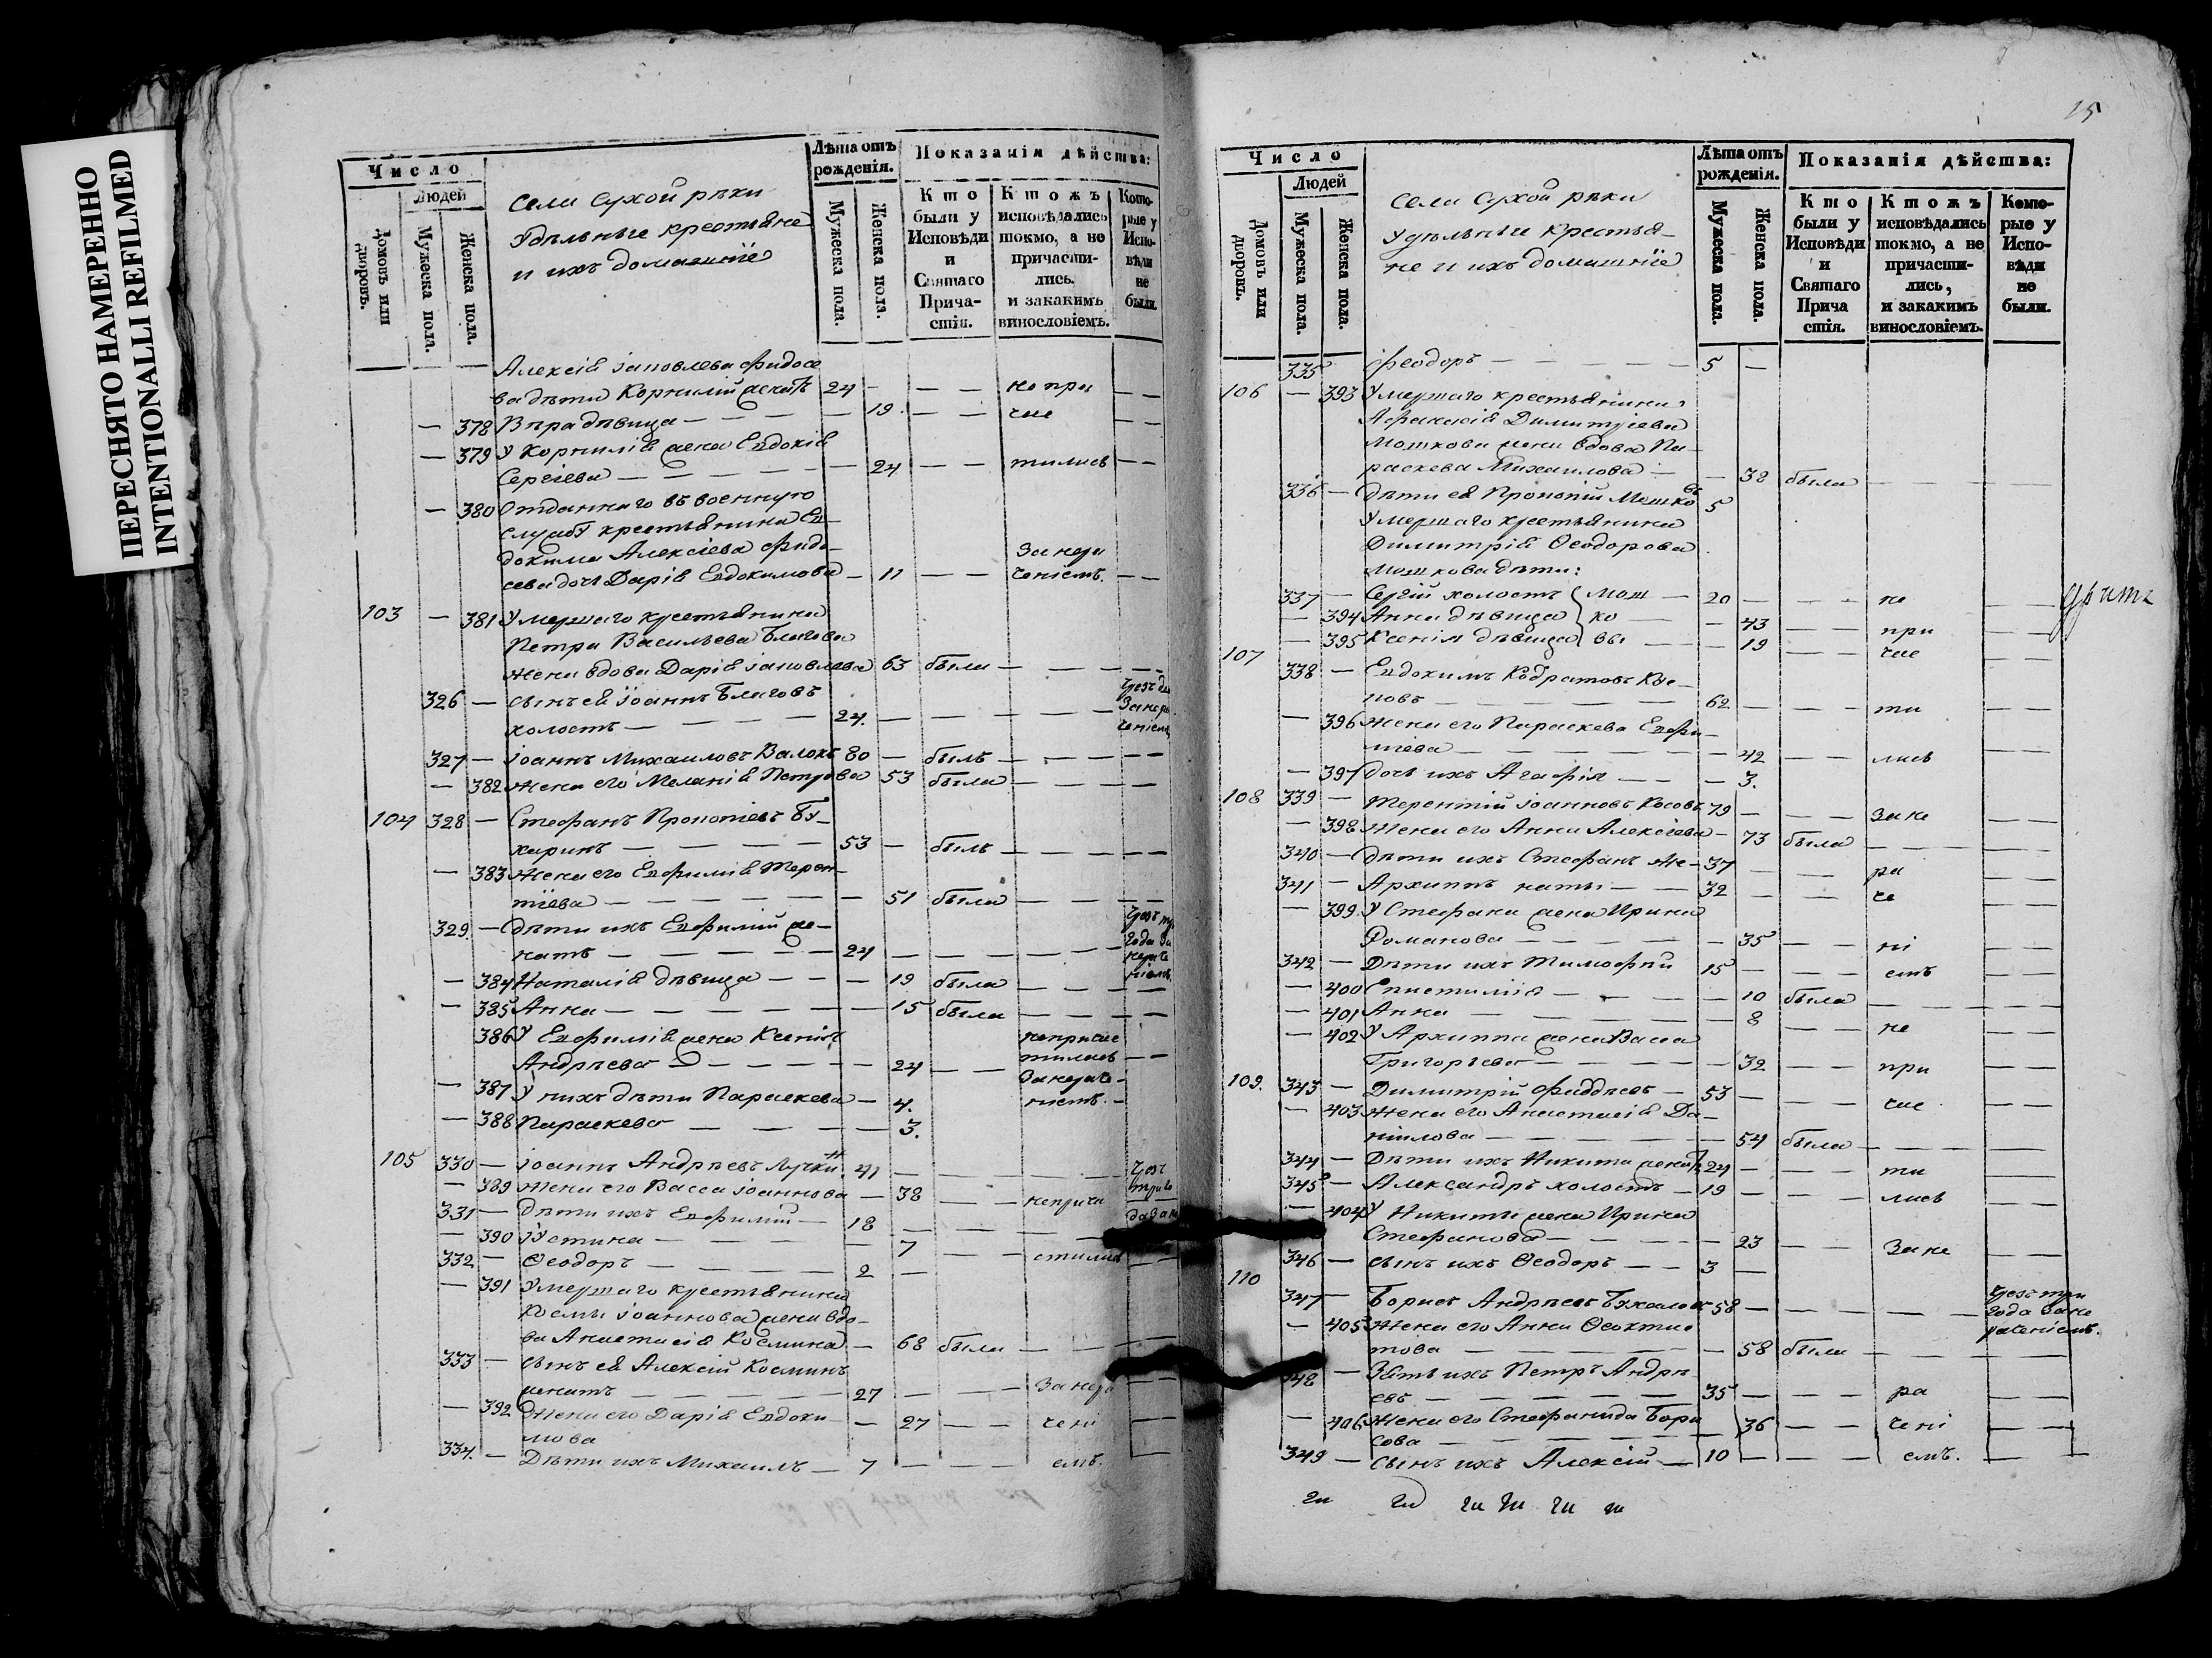 ПЕРЕСНЯТО НАМЕРЕННО
INTENTIONALLI REFILMED
Число
Лѣта отъ рожденія.
Показанія дѣйства:
Домовъ или дворовъ.
Людей
Мужеска пола.
Женска пола.
Села Сухой рѣки
Удѣльные крестьяне
и ихъ домашніе
Мужеска пола.
Женска пола.
Кто были у Исповѣди и Святаго Прича-стія.
Ктожъ исповѣдались токмо, а не причасти-лись. и закакимъ винословіемъ.
Кото-рые у Испо-вѣди не были.
Алексія Іаковлева Фидосе
ва дѣти Корнилій женатъ 24 — — — не при — —
— 378 Вѣра дѣвица — — — 19. — — час — —
— 379 У Корнилія жена Евдокія
Сергіева — — — — 24 — — тились — —
— 380 Отданнаго въ военную
службу крестьянина Ев-
докима Алексіева Фидо-
сева дочь Дарія Евдокимова — 11 — — За нера ченіемъ. — —
103 — 381 Умершаго крестьянина
Петра Васильева Благова
жена вдова Дарія Іаковлева 63 была — — — —
326 — сынъ ея Іоаннъ Благовъ
холостъ — — — — 24. — — — — За нера ченіемъ
327 — Іоаннъ Михаиловъ Валокъ 80 — былъ — — — — —
— 382 жена его Меланія Петрова 53 была — — — —
104 328 — Стефанъ Прокопіевъ Бу-
харинъ — — — — 53 — былъ — — — — —
— 383 жена его Евфимія Терен-
тіева — — — — — — 51 была — — — —
329. — дѣти ихъ Евфимій же-
натъ — — — — — 24 — — — — — года за нераче ніемъ.
— 384 Наталія дѣвица — — — 19 была — — — —
— 385 Анна — — — — — — 15 была — — — —
386 У Евфимія жена Ксенія
Андрѣева — — — — — 24 — — непричас тились — —
— 387 У нихъ дѣти Параскева — 4. За нераче-ніемъ. —
— 388 Параскева — — — — 3.
105 330 — Іоаннъ Андрѣевъ Лучкин. 41 — — — — —
— 389 жена его Васса Іоаннова — 38 — — непричa
331 — Дѣти ихъ Евфимій — 18 — — — —
— 390 Іустина — — — — — 7 — — стились — —
332 — Ѳеодоръ — — — — 2 —
— 391 Умершаго крестьянина
Космы Іоаннова жена вдо-
ва Анастасія Космина — 68 была — — —
333 — сынъ ея Алексій Косминъ
женатъ — — — — 27 — — — За нера — —
— 392 жена его Дарія Евдоки-
мова — 27 — — чені — —
334. — Дѣти ихъ Михаилъ — 7 — — — емъ. —
15
Число
Лѣта отъ рожденія.
Показанія дѣйства:
Домовъ или дворовъ.
Людей
Мужеска пола.
Женска пола.
Села Сухой рѣки
Удѣльные крестья-
не и ихъ домашніе
Мужеска пола.
Женска пола.
Кто были у Исповѣди и Святаго Прича стія.
Ктожъ исповѣдались токмо, а не причасти-лись, и закакимъ винословіемъ.
Кото-рые у Испо-вѣди не были.
335 Феодоръ — — — — 5 —
106 — 393 Умершаго крестьянина
Афанасія Димитріева
Мошкова жена вдова Па-
раскева Михаилова — — 38 была — — —
336 — дѣти ея Прокопій Мошковъ 5
Умершаго крестьянина
Димитрія Ѳеодорова
Мошкова дѣти:
337 — Сергій холостъ { Мош — 20 — — — не —
— 394 Анна дѣвица { ко — — 43 — — при — —
— 395 Ксенія дѣвица { вы — — 19 — — час — —
107 338 — Евдокимъ Кодратовъ Кус-
новъ — — — — — 62 — — — ти — —
— 396 жена его Параскева Евфи-
міева — — — — — 42 — — лись — —
— 397 дочь ихъ Агафія — — — 3.
108 339 — Терентій Іоанновъ Косовъ 79 — — — За не — —
— 398 жена его Анна Алексіева — 73 была — — —
340 — дѣти ихъ Стефанъ же- 37 — — — ра — —
341 — Архиппъ наты — — 32 — — — че — —
— 399. У Стефана жена Ирина
Романова — — — — — 35 — — ні — —
342 — Дѣти ихъ Тимофей 15 — — — емъ — —
— 400 Епистимія — — — 10 была — — —
— 401 Анна — — — — 8 — — не — —
— 402 У Архиппа жена Васса
Григорьева — — — — 32 — — при — —
109. 343 — Димитрій Фаддѣевъ — 53 — — — час — —
— 403 жена его Анастасія Да-
ніилова — — — — — 54 была — — —
344 — Дѣти ихъ Никита женатъ 24 — — — ти — —
345 — Александръ холостъ — 19 — — — лись — —
— 404 У Никиты жена Ирина
Стефанова — — — — 23 — — За не — —
346 — сынъ ихъ Ѳеодоръ — — 3 —
110 347 — Борисъ Андрѣевъ Бухаловъ 58 — — — — Чрез три года за не раченіемъ.
— 405 жена его Анна Ѳеокти-
това — — — — — 58 была — — —
348 — Зять ихъ Петръ Андрѣ
евъ — — — — — 35 — — — ра — —
— 406 жена его Стефанида Бори
сова — — — — — 36 — — чені — —
349 — Сынъ ихъ Алексій — 10 — — — емъ. — —